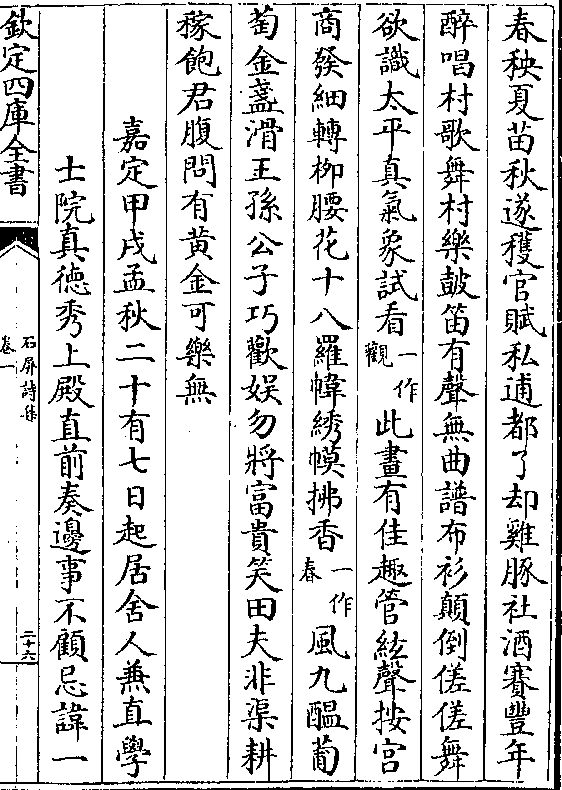 春秧夏苗秋遂穫官賦私逋都了却雞豚社酒賽豐年
醉唱村歌舞村樂鼓笛有聲無曲譜布衫顛倒傞傞舞
欲識太平真氣象試看一作觀此畫有佳趣管絃聲按宫
商發細轉栁腰花十八羅幃綉幙拂香一作春風九醖葡
萄金盞滑王孫公子巧歡娱勿將富貴笑田夫非渠耕
稼飽君腹問有黄金可樂無
嘉定甲戌孟秋二十有七日起居舍人兼直學
士院真徳秀上殿直前奏邊事不顧忌諱一
欽定四庫全書
石屏詩集
卷一
二十六